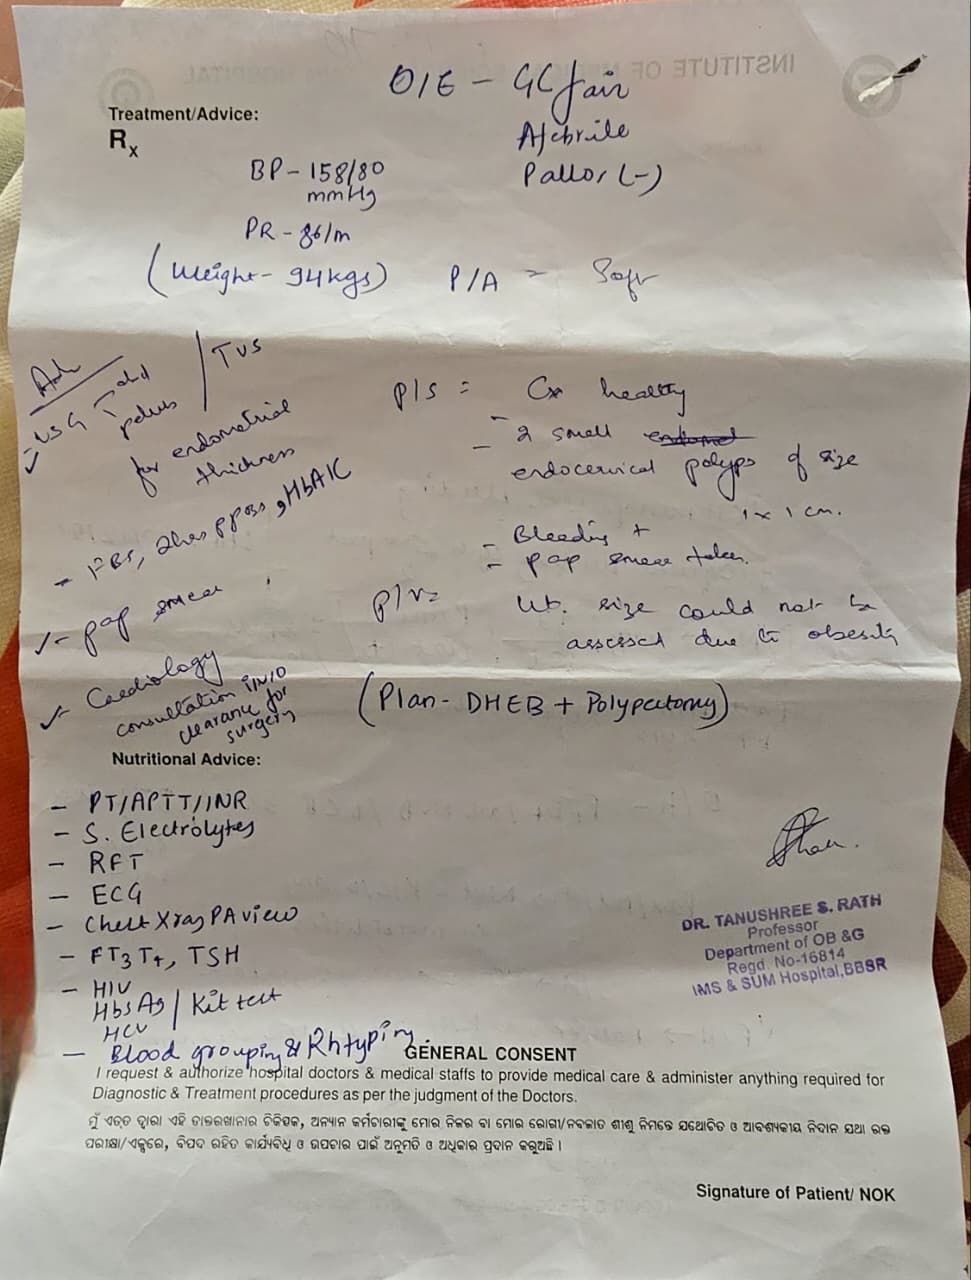 O/E - GC fair
Treatment/Advice:
Rx
Afebrile
Pallor (-)
BP - 158/80
mmHg
PR - 86/m
(Weight - 94kgs)
P/A = Soft
Adv
- USG T abd / TVS
pelvis
for endometrial
thickness
- FBS, 2hrs PPBS, HbA1C
- pap smear
- Cardiology
consultation i/v/o
clearance for
surgery
P/S = Cx healthy
- 2 small
endocervical polyps of size
1 x 1 cm.
- Bleeding +
- pap smear taken.
P/V = Ut. size could not be
assessed due to obesity
(Plan - DHEB + Polypectomy)
Nutritional Advice:
- PT/APTT/INR
- S. Electrolytes
- RFT
- ECG
- Chest Xray PA view
- FT3 T4, TSH
- HIV
HbsAg / Kit test
HCV
- Blood grouping & Rh typing.
DR. TANUSHREE S. RATH
Professor
Department of OB &G
Regd. No-16814
IMS & SUM Hospital,BBSR
GENERAL CONSENT
I request & authorize hospital doctors & medical staffs to provide medical care & administer anything required for
Diagnostic & Treatment procedures as per the judgment of the Doctors.
ମୁଁ ଏତଦ୍ ଦ୍ୱାରା ଏହି ଡାକ୍ତରଖାନାର ଚିକିତ୍ସକ, ଅନ୍ୟାନ କର୍ମଚାରୀଙ୍କୁ ମୋର ନିଜର ବା ମୋର ରୋଗୀ/ନବଜାତ ଶିଶୁ ନିମନ୍ତେ ଯଥୋଚିତ ଓ ଆବଶ୍ୟକୀୟ ନିଦାନ ଯଥା ରକ୍ତ
ପରୀକ୍ଷା/ଏକ୍ସରେ, ବିପଦ ରହିତ କାର୍ଯ୍ୟବିଧି ଓ ଉପଚାର ପାଇଁ ଅନୁମତି ଓ ଅଧିକାର ପ୍ରଦାନ କରୁଅଛି ।
Signature of Patient/ NOK